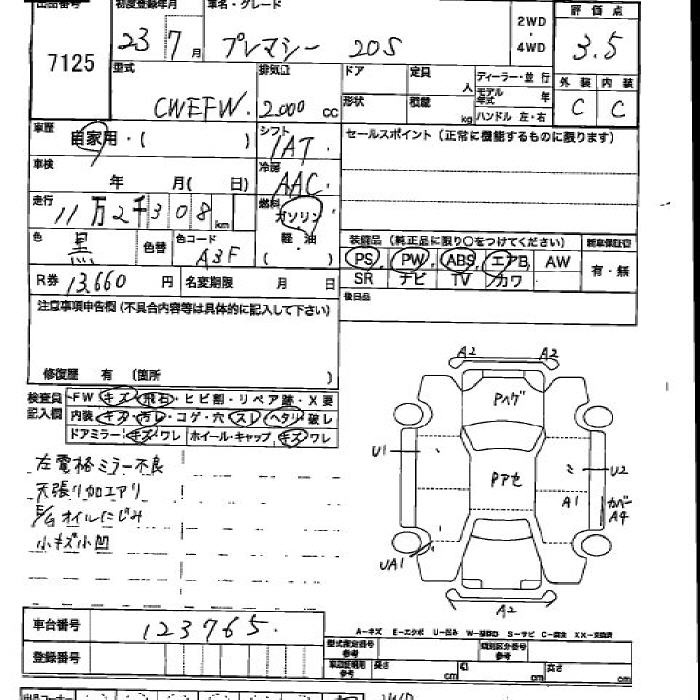 出品番号 初度登録年月 車名・グレード 評価点
7125 23 7月 プレマシー 20S 2WD・4WD 3.5
型式 排気量 ドア 定員 人 ディーラー・並行 外装 内装
CWEFW. 2,000 cc 形状 積載 kg モデル年式 年 C C
ハンドル 左・右
車歴 自家用・( ) シフト 1AT. セールスポイント(正常に機能するものに限ります)
車検 年 月( 日) 冷房 AAC.
走行 11万2千308km 燃料 ガソリン 軽・油 ( )
色 黒 色替 色コード A3F
装備品(純正品に限り○をつけてください) 新車保証書
PS, PW, ABS, エアB, AW 有・無
SR ナビ TV カワ
R券 13,660円 名変期限 月 日 後日品
注意事項申告欄(不具合内容等は具体的に記入して下さい)
修復歴 有 (箇所 )
検査員記入欄 FW キズ・飛石・ヒビ割・リペア跡・X要
内装・キズ・汚レ・コゲ・穴・スレ・ヘタリ・破レ
ドアミラー:キズ・ワレ ホイール・キャップ,キズ・ワレ
左電格ミラー不良
天張リ加工アリ
E/G オイルにじみ
小キズ小凹
A2 A2
Pハゲ
U1 U2
Pアセ
A1 カバーA4
UA1
A2
A-キズ E-エクボ U-凹み
車台番号 123765.
登録番号
型式指定番号 参考 類別区分番号 参考
長さ cm 巾 cm 高さ cm